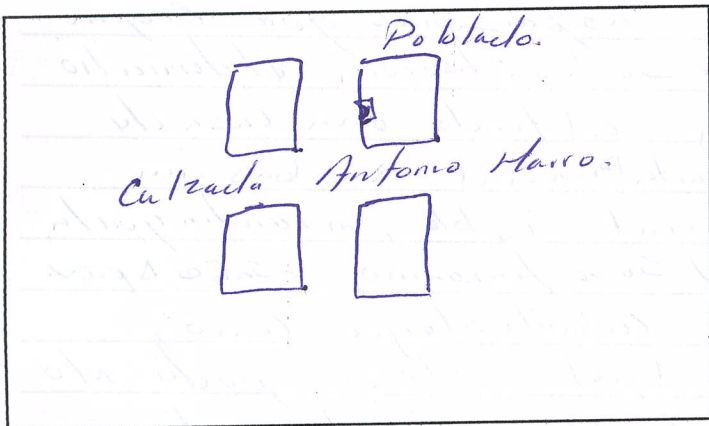 Poblado.
Calzada Antonio Narro.